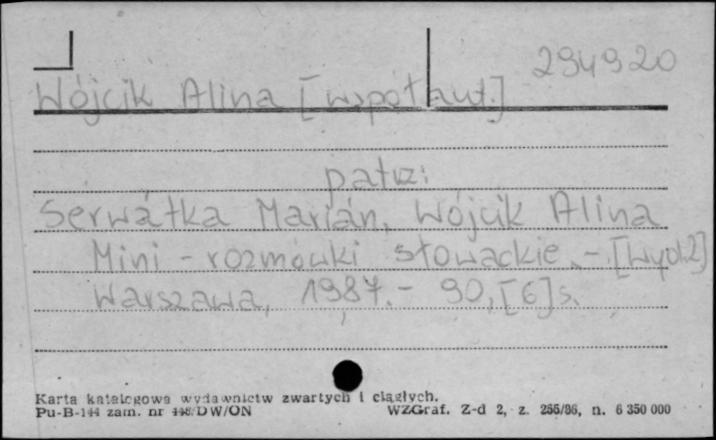 294920
Wójcik Alina [współaut.]
patrz:
Serwátka Marián, Wójcik Alina
Mini-rozmówki słowackie. - [Wyd.2]
Warszawa, 1987. - 90, [6] s.
Karta katalogowa wydawnictw zwartych i ciągłych.
Pu-B-144 zam. nr 448/DW/ON WZGraf. Z-d 2, z. 266/86, n. 6 350 000